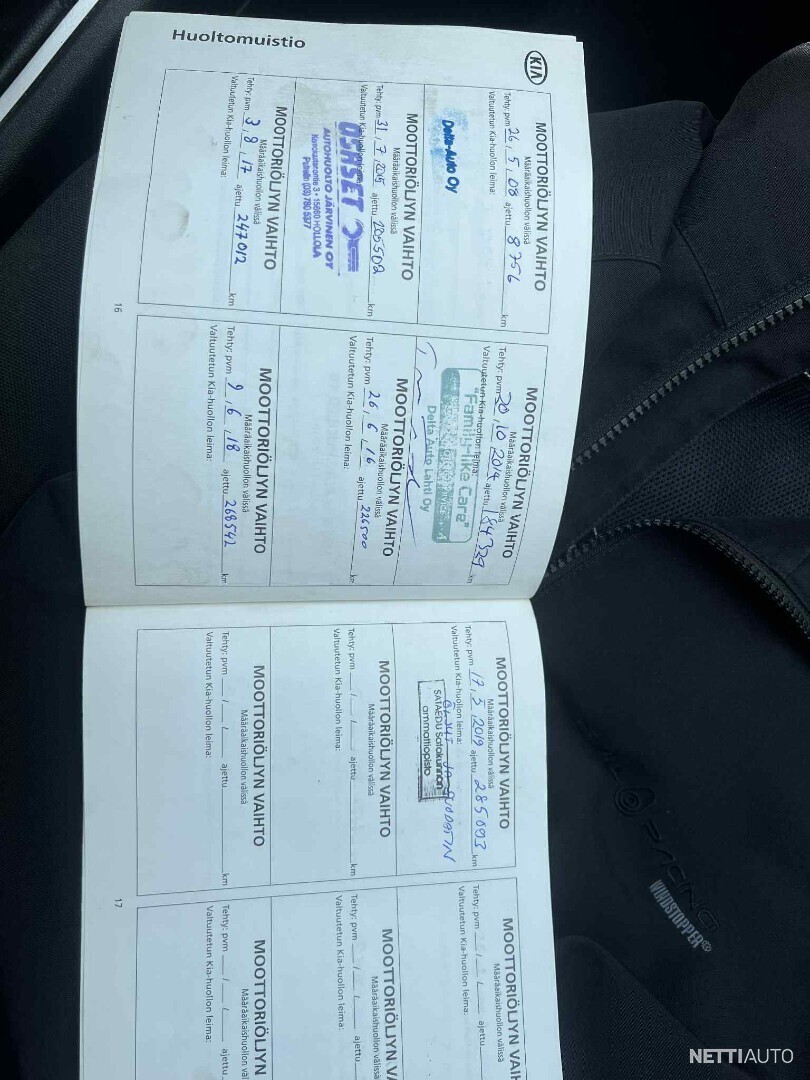 Huoltomuistio
KIA
MOOTTORIÖLJYN VAIHTO
Määräaikaishuollon välissä
Tehty: pvm 26 . 5 . 08 ajettu 8756 km
Valtuutetun Kia-huollon leima:
Delta-Auto Oy
MOOTTORIÖLJYN VAIHTO
Määräaikaishuollon välissä
Tehty: pvm 31 . 7 . 2015 ajettu 205502 km
Valtuutetun Kia-huollon leima:
OSASET
AUTOHUOLTO JÄRVINEN OY
15860 HOLLOLA
Puhelin (03) 780 5377
MOOTTORIÖLJYN VAIHTO
Määräaikaishuollon välissä
Tehty: pvm 3 . 8 . 17 ajettu 247012 km
Valtuutetun Kia-huollon leima:
16
MOOTTORIÖLJYN VAIHTO
Määräaikaishuollon välissä
Tehty: pvm 30 . 10 2014 ajettu 184329 km
Valtuutetun Kia-huollon leima:
"Family-like Care"
Delta Auto Lahti Oy
MOOTTORIÖLJYN VAIHTO
Määräaikaishuollon välissä
Tehty: pvm 26 . 6 . 16 ajettu 226500 km
Valtuutetun Kia-huollon leima:
MOOTTORIÖLJYN VAIHTO
Määräaikaishuollon välissä
Tehty: pvm 9 . 6 . 18 ajettu 268542 km
Valtuutetun Kia-huollon leima:
MOOTTORIÖLJYN VAIHTO
Määräaikaishuollon välissä
Tehty: pvm 17 . 5 . 2019 ajettu 285093 km
Valtuutetun Kia-huollon leima:
ÖLJYT JA SUODATIN
SATAEDU Satakunnan
ammattiopisto
MOOTTORIÖLJYN VAIHTO
Määräaikaishuollon välissä
Tehty: pvm / / ajettu km
Valtuutetun Kia-huollon leima:
MOOTTORIÖLJYN VAIHTO
Määräaikaishuollon välissä
Tehty: pvm / / ajettu km
Valtuutetun Kia-huollon leima:
17
MOOTTORIÖLJYN VAIHT
Määräaikaishuollon välissä
Tehty: pvm / / ajettu
Valtuutetun Kia-huollon leima:
MOOTTORIÖLJYN V
Määräaikaishuollon välissä
Tehty: pvm / / ajettu
Valtuutetun Kia-huollon leima:
MOOTTORIÖLJYN
Määräaikaishuollon
Tehty: pvm / /
Valtuutetun Kia-huollon leima:
RACING
WINDSTOPPER®
NETTIAUTO